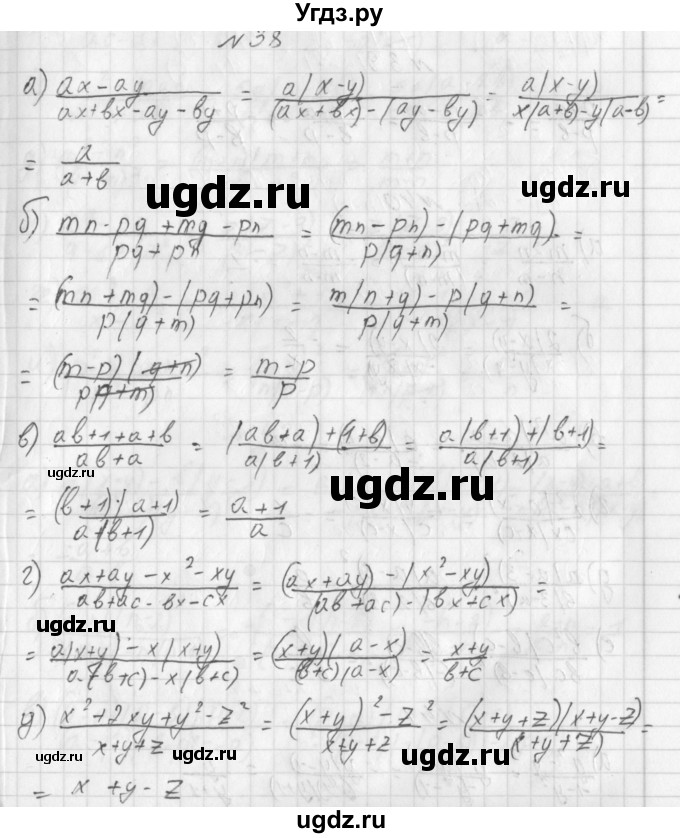 Угдз.ру
№38
а) (ax-ay)/(ax+bx-ay-by) = a(x-y)/((ax+bx)-(ay-by)) = a(x-y)/(x(a+b)-y(a-b)) =
= a/(a+b)
ugdz.ru ugdz.ru
б) (mn-pq+mq-pn)/(pq+pn) = ((mn-pn)-(pq+mq))/(p(q+n)) =
= ((mn+mq)-(pq+pn))/(p(q+m)) = (m(n+q)-p(q+n))/(p(q+m)) =
= ((m-p)(q+n))/(p(q+m)) = (m-p)/p
в) (ab+1+a+b)/(ab+a) = ((ab+a)+(1+b))/(a(b+1)) = (a(b+1)+(b+1))/(a(b+1)) =
ugdz.ru ugdz.ru
= ((b+1)(a+1))/(a(b+1)) = (a+1)/a
г) (ax+ay-x²-xy)/(ab+ac-bx-cx) = ((ax+ay)-(x²-xy))/((ab+ac)-(bx+cx)) =
ugdz.ru
= (a(x+y)-x(x+y))/(a(b+c)-x(b+c)) = ((x+y)(a-x))/((b+c)(a-x)) = (x+y)/(b+c)
ugdz.ru
д) (x²+2xy+y²-z²)/(x+y+z) = ((x+y)²-z²)/(x+y+z) = ((x+y+z)(x+y-z))/(x+y+z) =
ugdz.ru
= x+y-z
ugdz.ru
ugdz.ru